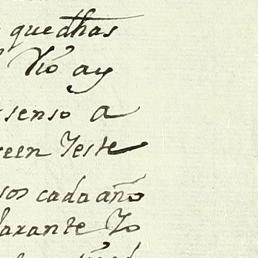 quedhas
Vio ay
senso a
reen Teste
sos cada año
larante Yo